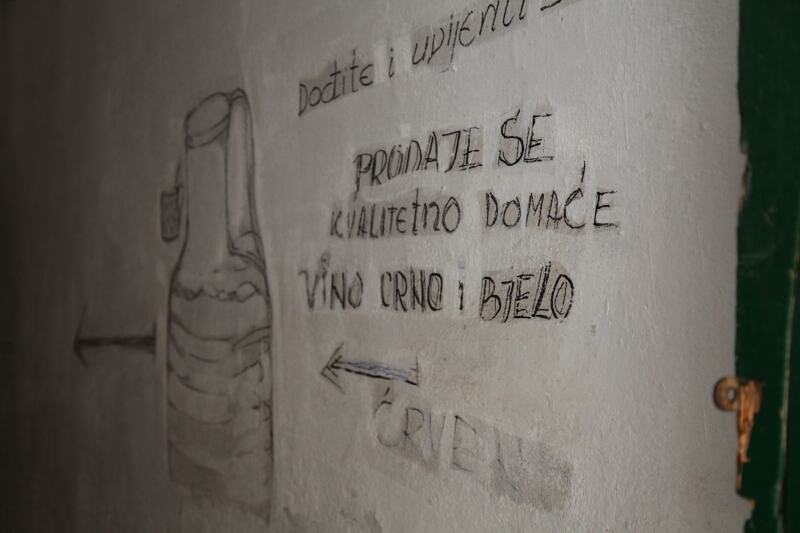 Dođite i uvijeriti
PRODAJE SE
KVALITETNO DOMAĆE
VINO CRNO i BJELO